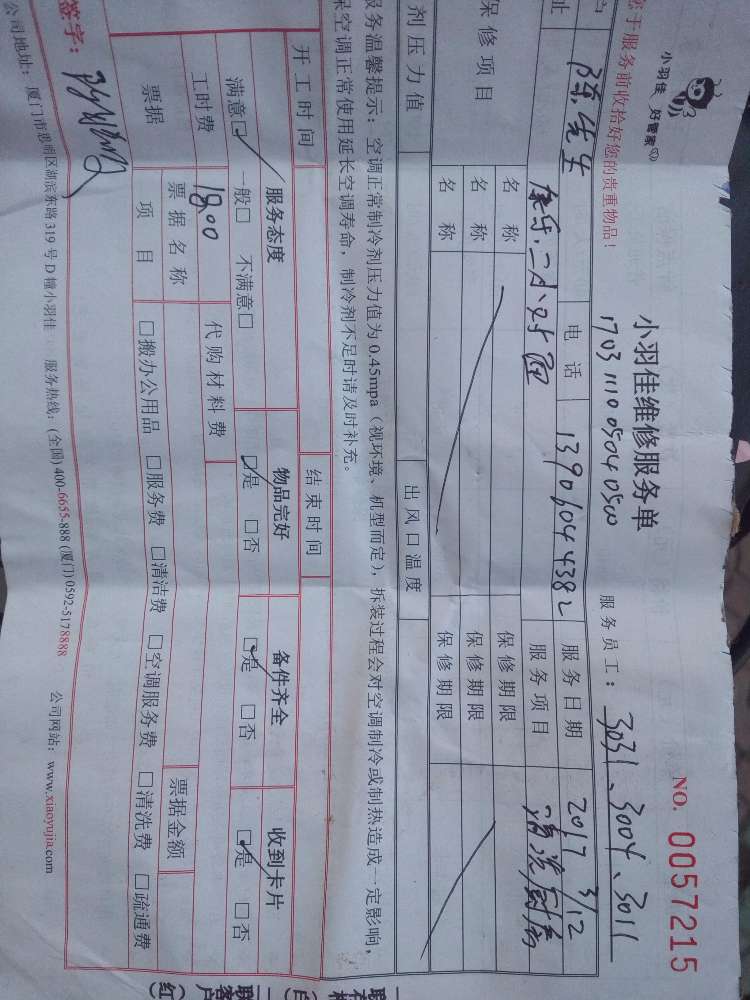 小羽佳 好管家
小羽佳维修服务单
NO. 0057215
于服务前收拾好您的贵重物品！
17031110 0504 0500
服务员工：3031、3004、3011
陈先生
电话
13906044382
服务日期
2017 3/12
址
服务项目
清洗
保修项目
名称
保修期限
名称
保修期限
名称
保修期限
剂压力值
出风口温度
务温馨提示：空调正常制冷剂压力值为0.45mpa（视环境、机型而定），拆装过程会对空调制冷或制热造成一定影响，
空调正常使用延长空调寿命，制冷剂不足时请及时补充。
开工时间
结束时间
服务态度
物品完好
备件齐全
收到卡片
满意☑ 一般□ 不满意□
☑是 □否
☑是 □否
☑是 □否
工时费
1800
代购材料费
票据
票据名称
票据金额
项目
□搬办公用品 □服务费 □清洁费 □空调服务费 □清洗费 □疏通费
签字：
公司地址：厦门市思明区湖滨东路319号D幢小羽佳 服务热线：(全国)400-6655-888 (厦门)0592-5178888 公司网站：www.xiaoyujia.com
联
客户
（红